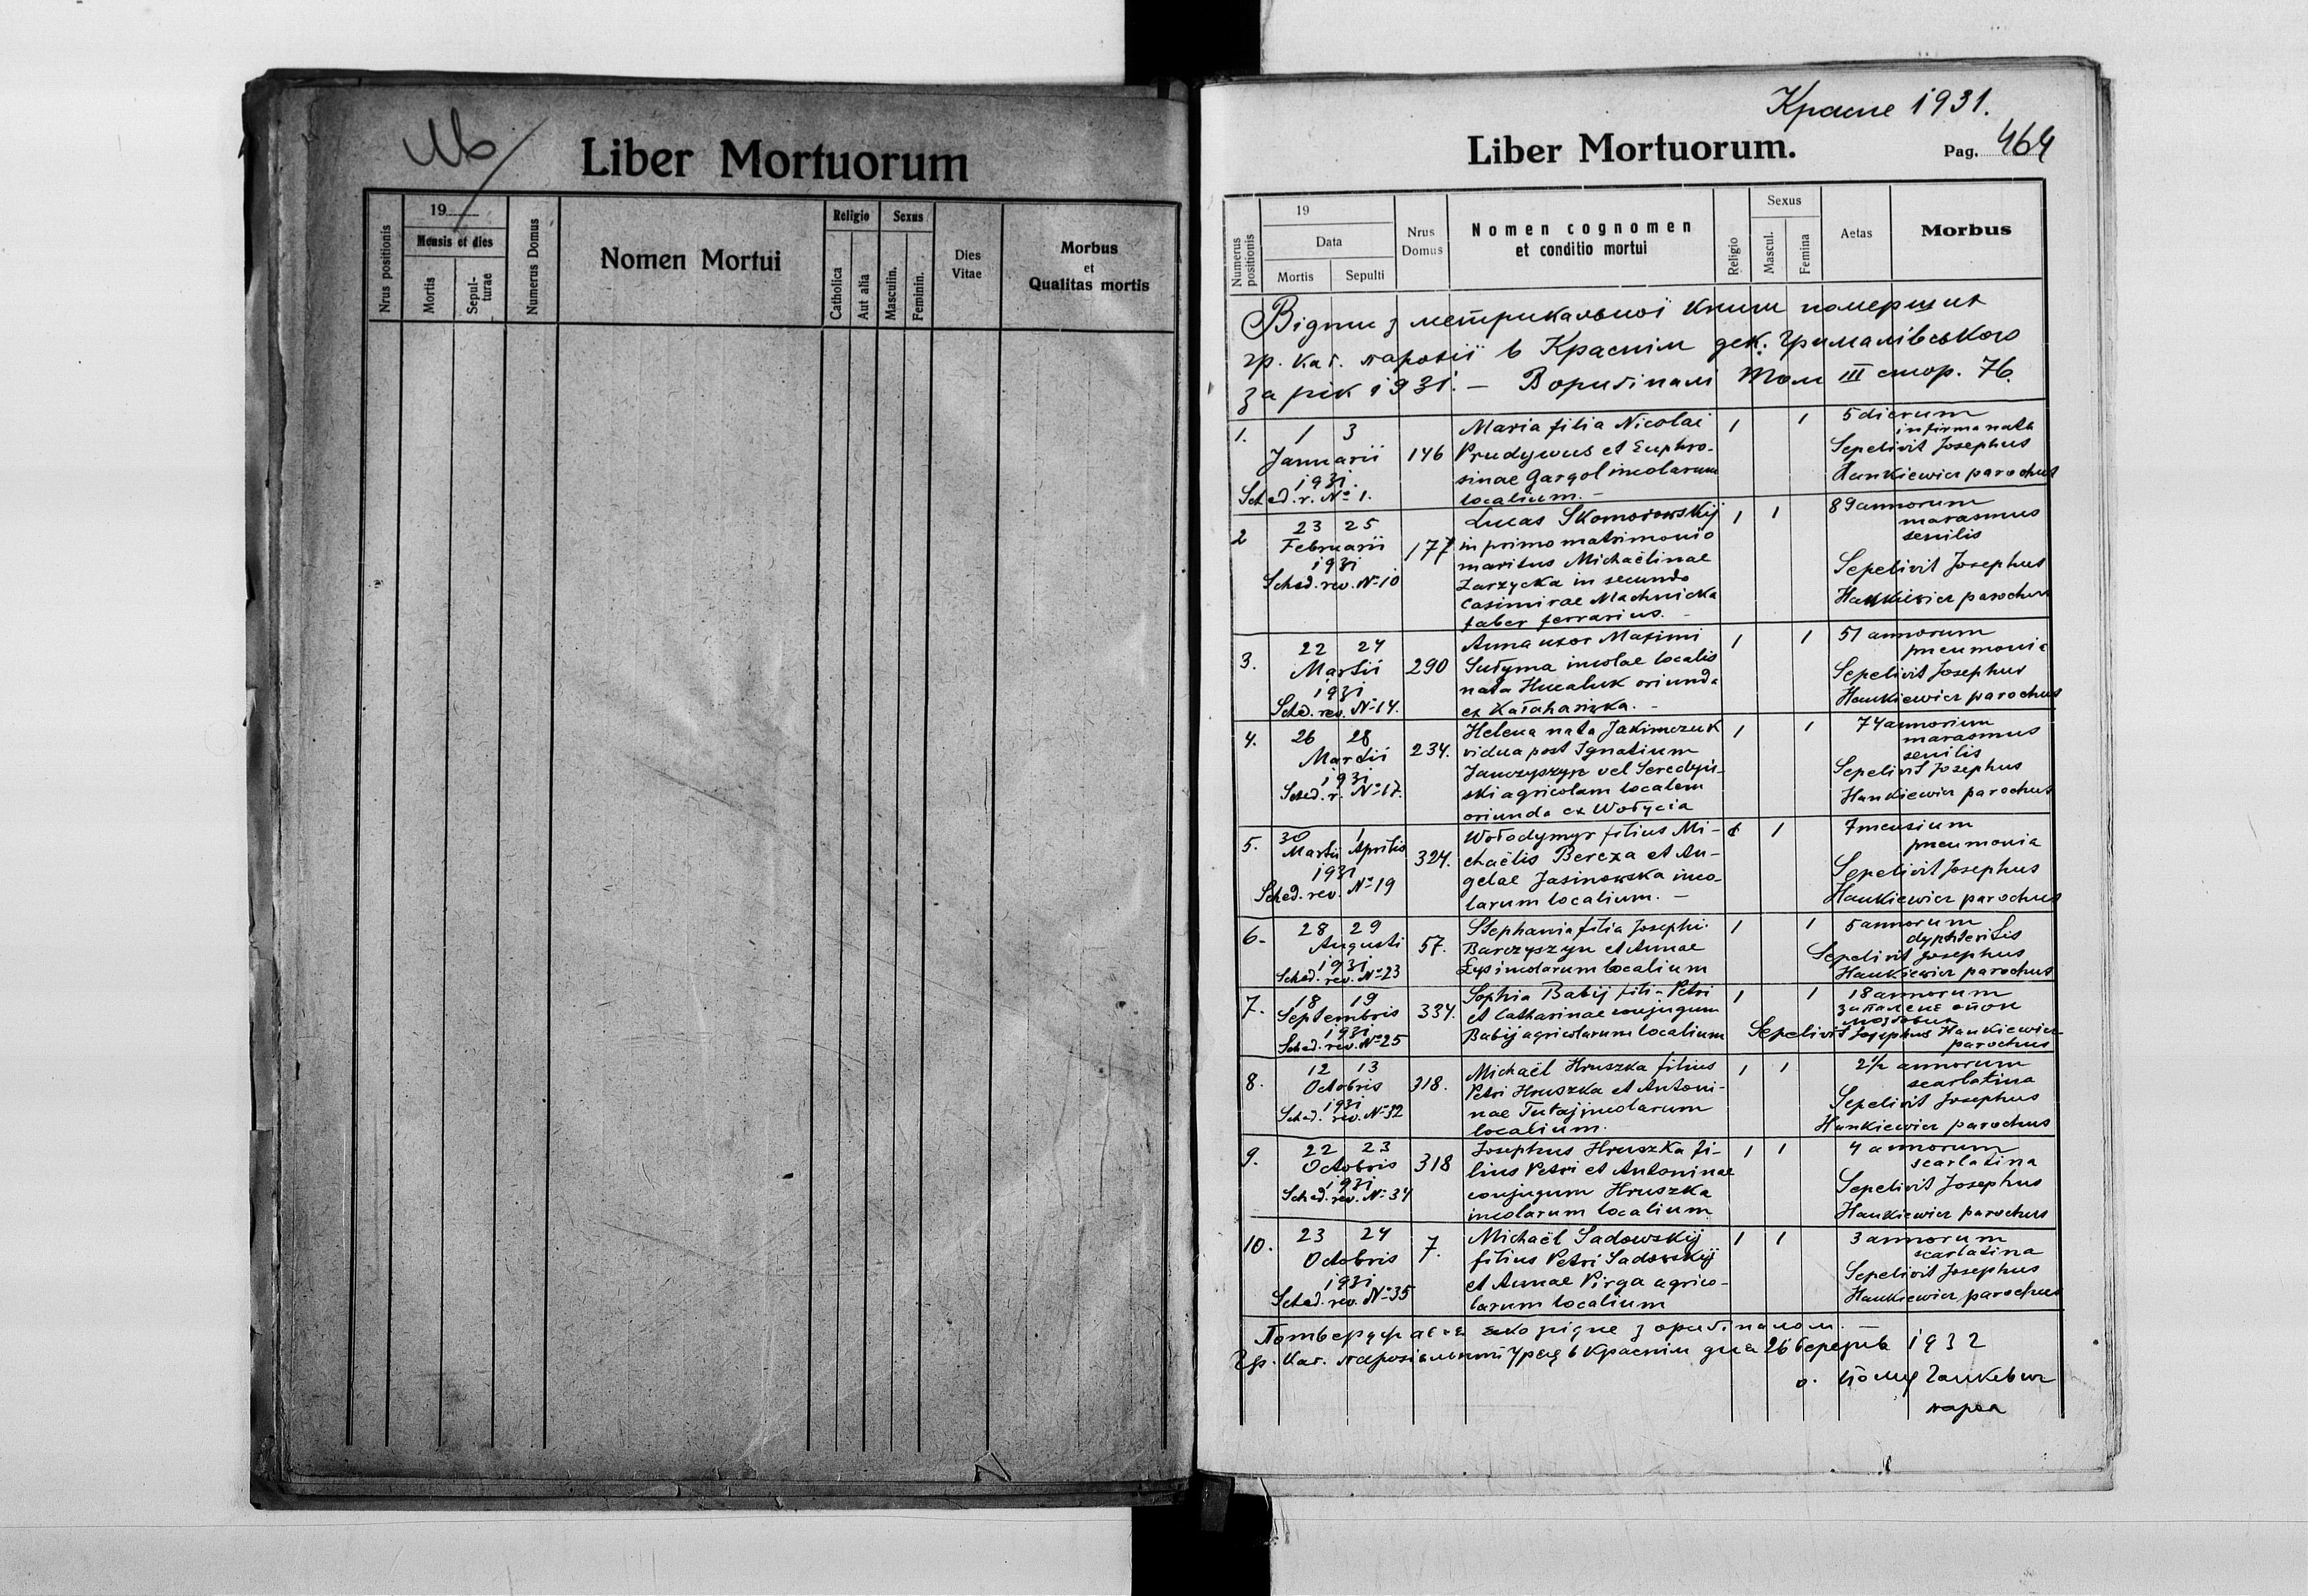 Liber Mortuorum
Nrus positionis
19
Mensis et dies
Mortis
Sepul-
turae
Numerus Domus
Nomen Mortui
Religio
Catholica
Aut alia
Sexus
Masculin.
Feminin.
Dies
Vitae
Morbus
et
Qualitas mortis
Красне 1931.
Liber Mortuorum.
Pag. 464
Numerus
positionis
19
Data
Mortis
Sepulti
Nrus
Domus
Nomen cognomen
et conditio mortui
Religio
Sexus
Mascul.
Femina
Aetas
Morbus
Відпис з метрикальної книги померших
гр. кат. парохії в Краснім дек. Грималівського
за рік 1931. — В оригіналі Том III стор. 76.
1. 1 3 Maria filia Nicolai 1 1 5 dierum
infirma nata
Januarii 146 Prudywus et Euphro- Sepelivit Josephus
1931. sinae Gargol incolarum Hankiewicz parochus
Sched. r. No 1. localium. —
2 23 25 Lucas Skomorowskij 1 1 89 annorum
Februarii 177 in primo matrimonio marasmus
1931 maritus Michaëlinae senilis
Sched. rev. No 10 Zarzycka in secundo Sepelivit Josephus
Casimirae Machnicka Hankiewicz parochus
faber ferrarius. —
3. 22 24 Anna uxor Maximi 1 1 51 annorum
Martii 290 Sutyma incolae localis pneumonia
1931 nata Hucaluk oriunda Sepelivit Josephus
Sched. rev. No 14. ex Kałahariwka. — Hankiewicz parochus
4. 26 28 Helena nata Jakimczuk 1 1 74 annorum
Martii 234. vidua post Ignatium marasmus
senilis
1931 Janczyszyn vel Seredyń- Sepelivit Josephus
Sched. r. No 17. ski agricolam localem Hankiewicz parochus
oriunda ex Wołycia
5. 30 1 Wołodymyr filius Mi- 1 1 7 mensium
Martii Aprilis 324. chaëlis Bereza et An- pneumonia
1931 gelae Jasinowska inco- Sepelivit Josephus
Sched. rev. No 19 larum localium. — Hankiewicz parochus
6. 28 29 Stephania filia Josephi 1 1 5 annorum
Augusti 57. Barczyszyn et Annae dyphteritis
1931 Łys incolarum localium Sepelivit Josephus
Sched. rev. No 23 Hankiewicz parochus
7. 18 19 Sophia Babij fili- Petri 1 1 18 annorum
Septembris 334. et Catharinae conjugum запалене опон
1931 Babij agricolarum localium мозгових
Sched. rev. No 25 Sepelivit Josephus Hankiewicz
parochus
8. 12 13 Michaël Hruszka filius 1 1 2½ annorum
Octobris 318. Petri Hruszka et Antoni- scarlatina
1931 nae Tutaj incolarum Sepelivit Josephus
Sched. rev. No 32 localium. Hankiewicz parochus
9. 22 23 Josephus Hruszka fi- 1 1 4 annorum
Octobris 318 lius Petri et Antoninae scarlatina
1931 conjugum Hruszka Sepelivit Josephus
Sched. rev. No 34 incolarum localium Hankiewicz parochus
10. 23 24 Michaël Sadowskij 1 1 3 annorum
Octobris 7. filius Petri Sadowskij scarlatina
1931 et Annae Pirga agrico- Sepelivit Josephus
Sched. rev. No 35 larum localium Hankiewicz parochus
згідне з оригіналом. —
Гр. кат. парохіяльний Уряд в Краснім дня 26 березня 1932
о. Йосиф Ганкевич
парох